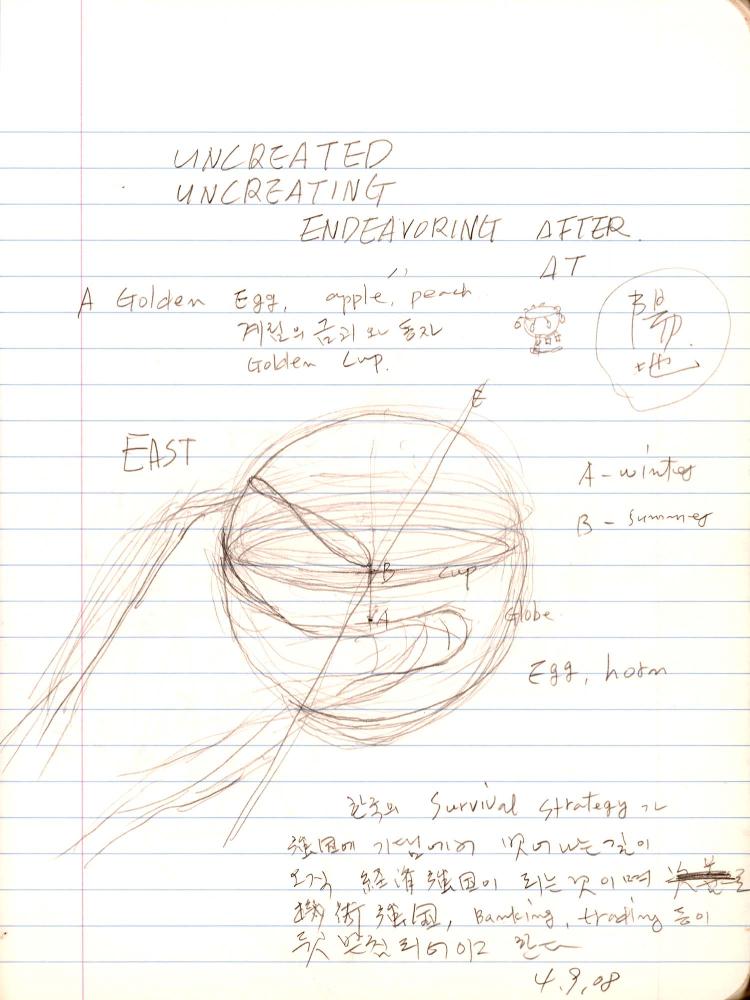 UNCREATED
UNCREATING
ENDEAVORING AFTER
AT
A Golden Egg, apple, peach
계절의 금리와 동자
Golden Cup.
陽
地
E
EAST
A - winter
B - Summer
B Cup
A
Globe
Egg, horn
한국의 Survival Strategy가
強国에 기댐에서 벗어나는 길이
오직 経済強国이 되는 것이며
技術強国, Banking, trading 등이
되어야 한다
4.9,08